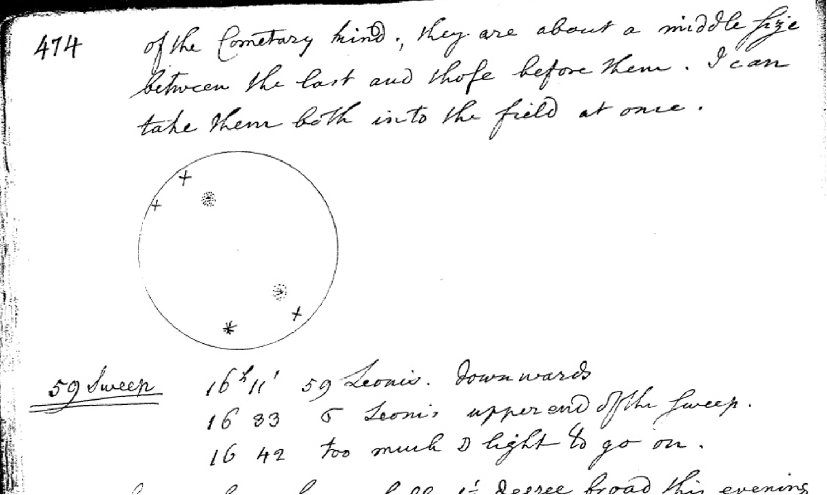 474
of the Cometary kind., they are about a middle size
between the last and those before them. I can
take them both into the field at once.
59 Sweep 16h 11' 59 Leonis. downwards
16 33 σ Leonis upper end of the sweep.
16 42 too much ☽ light to go on.
degree broad this evening